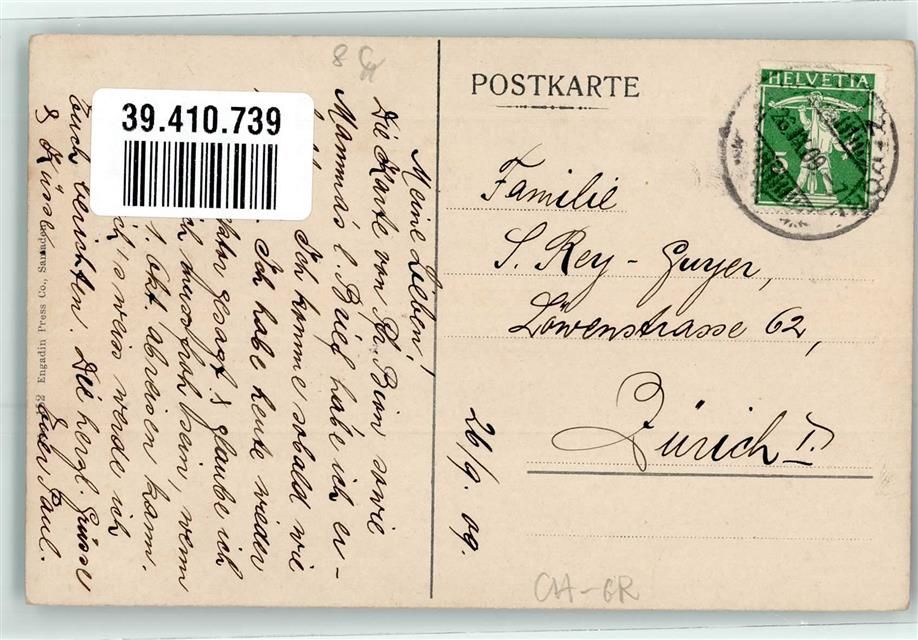 39.410.739
8
POSTKARTE
HELVETIA
5
Familie
S. Rey - Guyer,
Löwenstrasse 62,
Zürich I.
26/9. 09.
CH-GR
Meine Lieben!
Die Karte von Ph. Birn sowie
Mammas l. Brief habe ich er-
Ich komme sobald wie
Ich habe heute wieder
gesagt & glaube ich
ich muss froh sein, wenn
1. Okt. abreisen kann.
ich's weiss werde ich
Euch berichten. Die herzl. Grüsse
& Küsse Euer Paul.
Engadin Press Co., Samaden